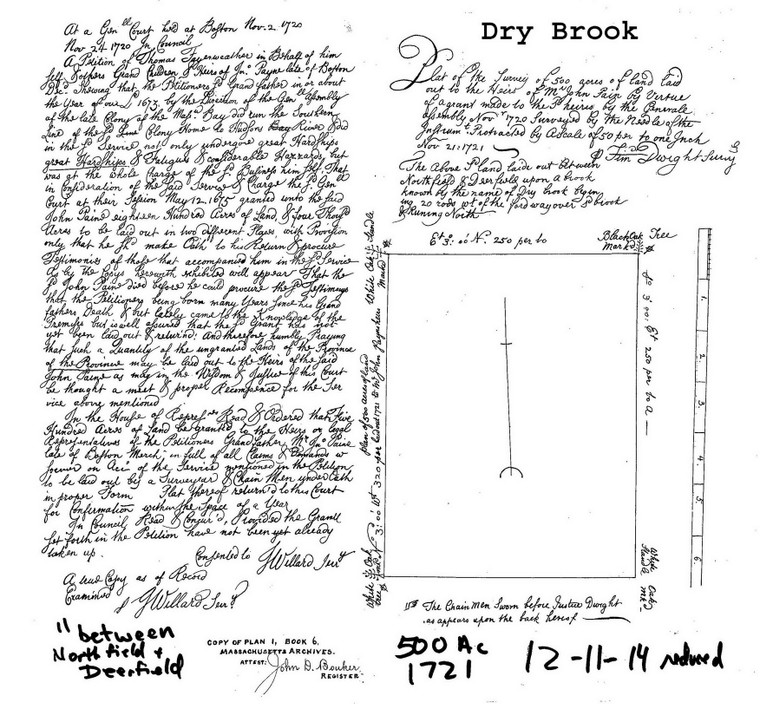 At a Gen.ll Court held at Boston Nov. 2. 1720
Nov 24 1720 In Council
A Petition of Thomas Fayerweather in Behalf of him
self & others Grand Children & Heirs of Jn.o Payne late of Boston
Dec.d Shewing that the Petitioners s.d Grand father in or about
the Year of our 1673, by the Direction of the Gen.ll Assembly
of the late Colony of the Mass.a Bay did run the Southern
Line of the s.d Colony Home to Hudsons Bay River & did
in the s.d Service not only undergo great Hardships
great Hardships & Fatigues & considerable Hazzards but
was at the whole Charge of the s.d Business him self. That
in Consideration of the said Service & Charge the s.d Gen.
Court at their Session May 12. 1675 granted unto the said
John Paine eighteen Hundred Acres of Land, & four Thous.d
Acres to be laid out in two different Places, with Provision
only that he s.d make Oath to his Return & procure
Testimonies of those that accompanied him in the s.d Service
As by the Copys herewith exhibited will appear That the
s.d John Paine died before he could procure the s.d Testimonys
that the Petitioners being born many Years since his Grand
fathers Death & but lately came to the Knowledge of the
Premises but is well assured that the s.d Grant has not
yet been laid out & return'd; And therefore humbly Praying
that such a Quantity of the ungranted Lands of the Province
of the Province may be laid out to the Heirs of the said
John Paine as may in the Wisdom & Justice of this Court
be thought a meet & proper Recompence for the Ser
vice above mentioned
In the House of Represves Read & Ordered that Five
Hundred Acres of Land be granted to the Heirs or legal
Representatives of the Petitioners Grandfather, Mr Jno Paine
late of Boston Merch.t in full of all Claims & Demands w
soever on Acct of the Service mentioned in the Petition
to be laid out by a Surveyor & Chain Men under Oath
in proper Form Plat thereof return'd to this Court
for Confirmation within the Space of a Year
In Council, Read & Concur'd, Provided the Grants
set forth in the Petition have not been yet already
taken up.
Consented to J Willard Secry
A true Copy as of Record
Examined
J Willard Secry
" between
Northfield +
Deerfield
COPY OF PLAN 1, BOOK 6.
MASSACHUSETTS ARCHIVES.
ATTEST: John D. Bouker
REGISTER.
Dry Brook
Plat of the Survey of 500 acres of land laid
out to the Heirs of Mr John Pain by Virtue
of a grant made to the s.d heirs by the Generale
assembly Nov 1720 Surveyed by the Needle of the
Instrumt Protracted by A Scale of 50 per to one Inch
Nov 21: 1721
P Tim Dwight Survr
The Above s.d land laide out between
Northfield & Deerfield upon a brook
known by the name of Dry brook begin
ing 20 rods wt of the fordway over s.d brook
& Runing North
Et 3: 00 N. 250 per to
Black Oak Tree
Markd
White Oak Staddle
Markd
plan of 500 acres of land
So 3 00: Et 250 per to a
1.
2
3.
4.
5
6.
White Oak
Staddle
Mk.
The Chain Men Sworn before Justice Dwight
as appears upon the back hereof
500 Ac
1721
12-11-14 reduced